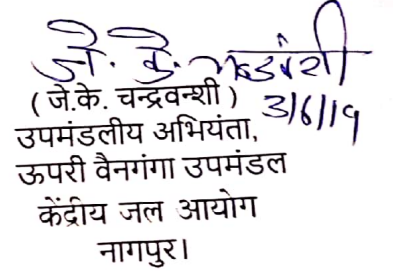 जे. के. चन्द्रवंशी
(जे.के. चन्द्रवन्शी) 3/6/19
उपमंडलीय अभियंता,
ऊपरी वैनगंगा उपमंडल
केंद्रीय जल आयोग
नागपुर।